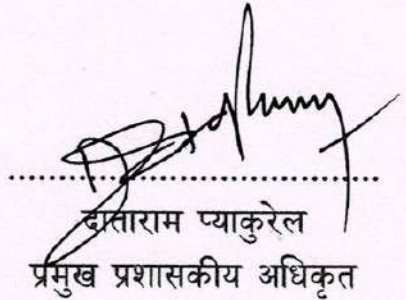 ....................................................
दाताराम प्याकुरेल
प्रमुख प्रशासकीय अधिकृत